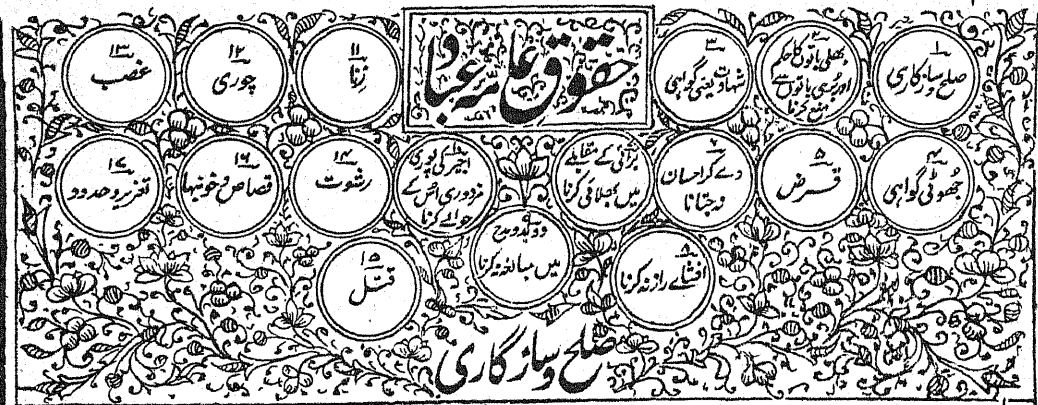 حقوق عامہ عباد
۱
صلح و سازگاری
۲
بھلی باتوں کا حکم
اور بُری باتوں سے
منع کرنا
۳
شہادت یعنی گواہی
۴
جھوٹی گواہی
۵
قرض
۶
دے کر احسان
نہ جتانا
برائی کے مقابلے
میں بھلائی کرنا
۸
افشائے راز نہ کرنا
۹
دو بدو مدح
میں مبالغہ نہ کرنا
اجیر کی پوری
مزدوری اس کے
حوالے کرنا
۱۱
زنا
۱۲
چوری
۱۳
غصب
۱۴
رشوت
۱۵
قتل
۱۶
قصاص و خونبہا
۱۷
تعزیر و حدود
صلح و سازگاری